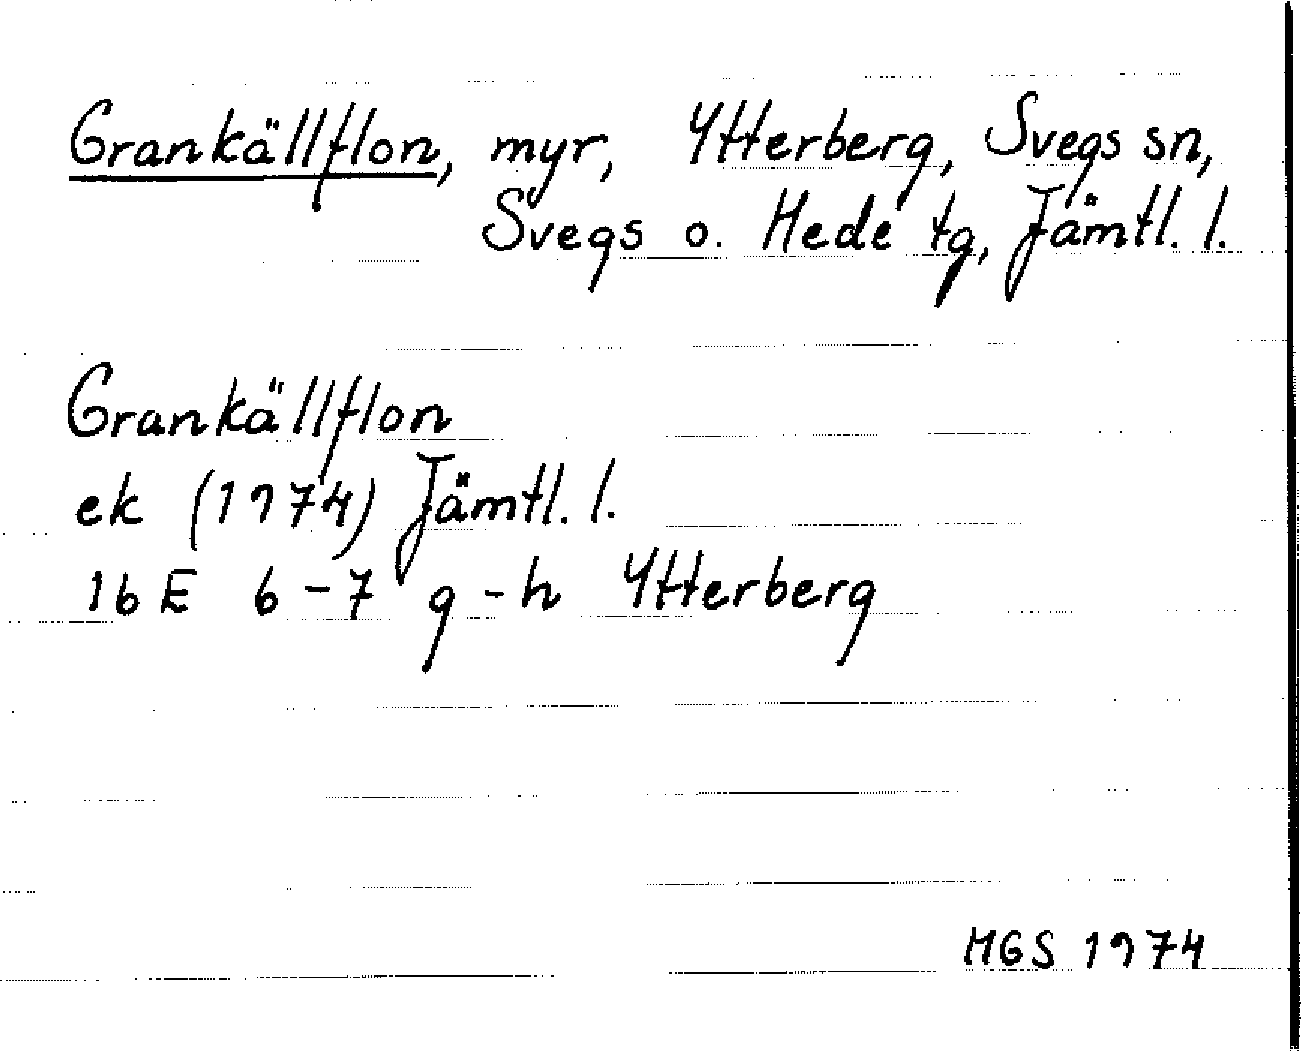 Grankällflon, myr, Ytterberg, Svegs sn,
Svegs o. Hede tg, Jämtl. l.
Grankällflon
ek (1974) Jämtl. l.
16 E 6-7 g-h Ytterberg
MGS 1974